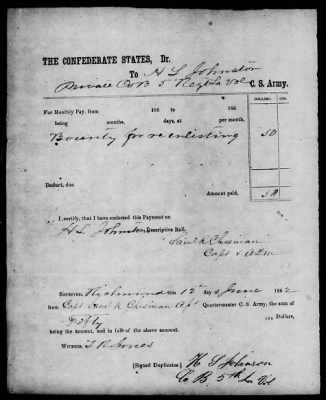 THE CONFEDERATE STATES, Dr.
To H L Johnston
Private Co B 5 Regt La Vol C. S. Army.
DOLLARS. CTS.
For Monthly Pay, from 186 to 186
being months, days, at per month,
Bounty for reenlisting 50
Deduct, due
Amount paid, 50
I certify, that I have endorsed this Payment on
H L Johnston Descriptive Roll.
Saml K Chisman
Capt & AQM
RECEIVED, Richmond this 12 d June 1862
from Capt Saml K Chisman Quartermaster C. S. Army, the sum of
Fifty Dollars,
being the amount, and in full of the above account.
WITNESS, T R Jones
[Signed Duplicates] H L Johnson
C B 5th La Vol